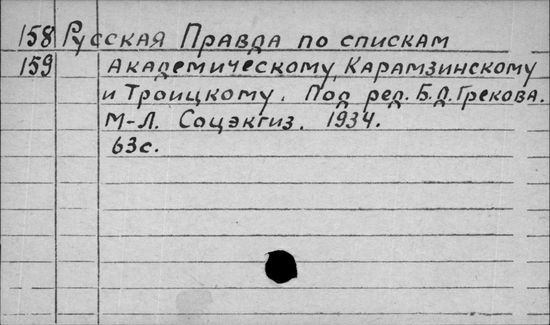 158 Русская Правда по спискам
159 Академическому, Карамзинскому
и Троицкому. Под ред. Б.Д.Грекова.
М-Л. Соцэкгиз. 1934.
63с.